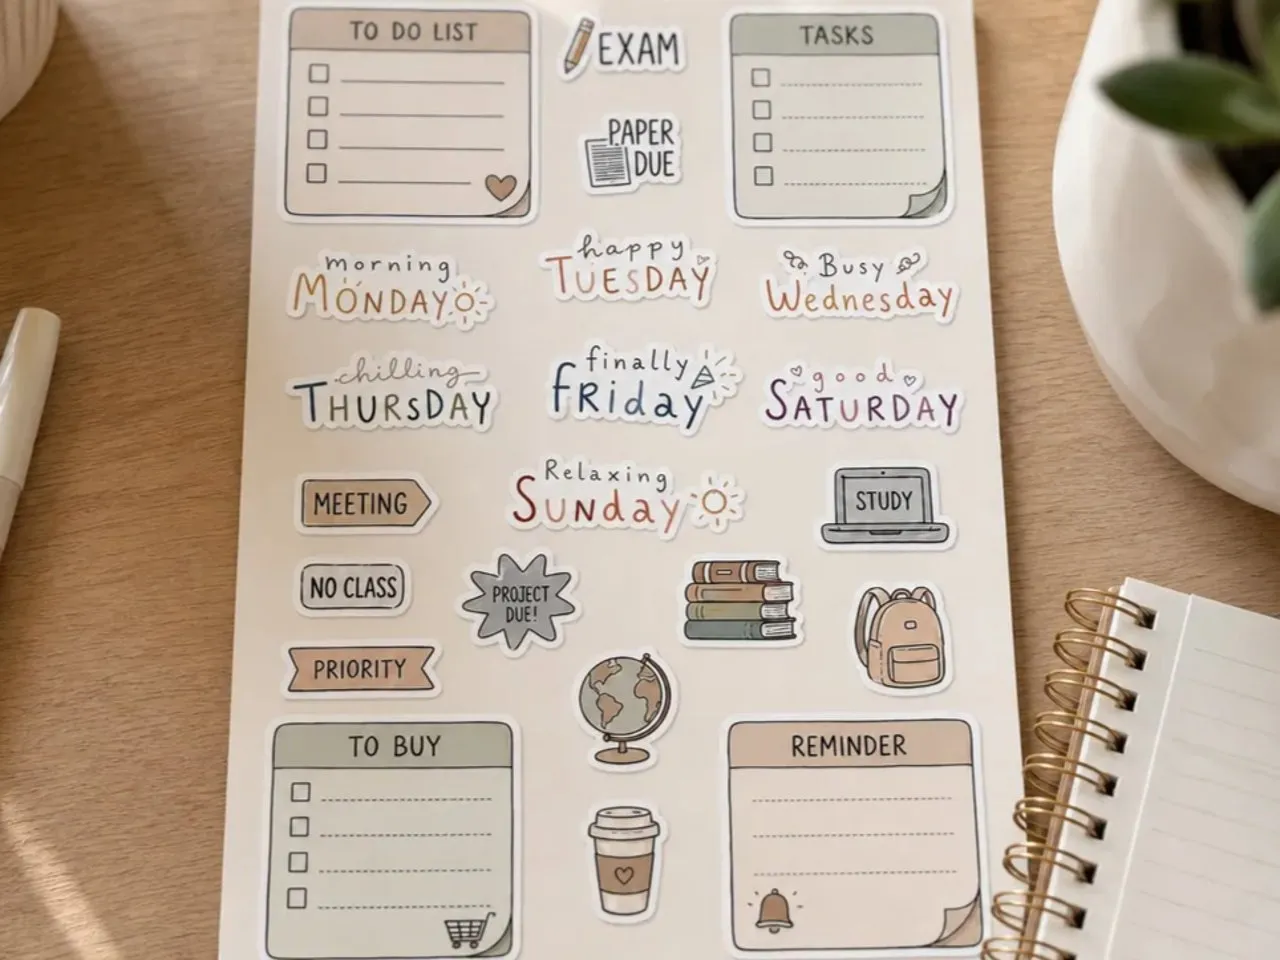 TO DO LIST
EXAM
TASKS
PAPER
DUE
morning
MONDAY
happy
TUESDAY
Busy
Wednesday
chilling
THURSDAY
finally
fRiday
good
SATURDAY
MEETING
Relaxing
Sunday
STUDY
NO CLASS
PROJECT
DUE!
PRIORITY
TO BUY
REMINDER